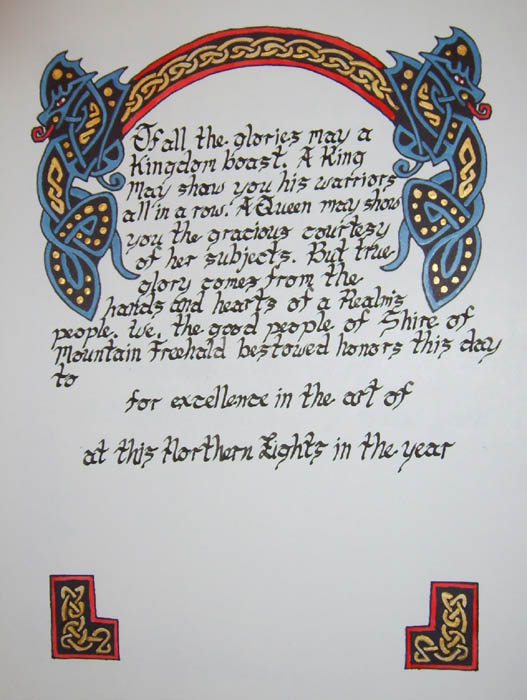 Of all the glories may a
Kingdom boast. A King
may show you his warriors
all in a row. A Queen may show
you the gracious courtesy
of her subjects. But true
glory comes from the
hands and hearts of a Realm's
people. We, the good people of Shire of
Mountain Freehald bestowed honors this day
to
for excellence in the art of
at this Northern Lights in the year